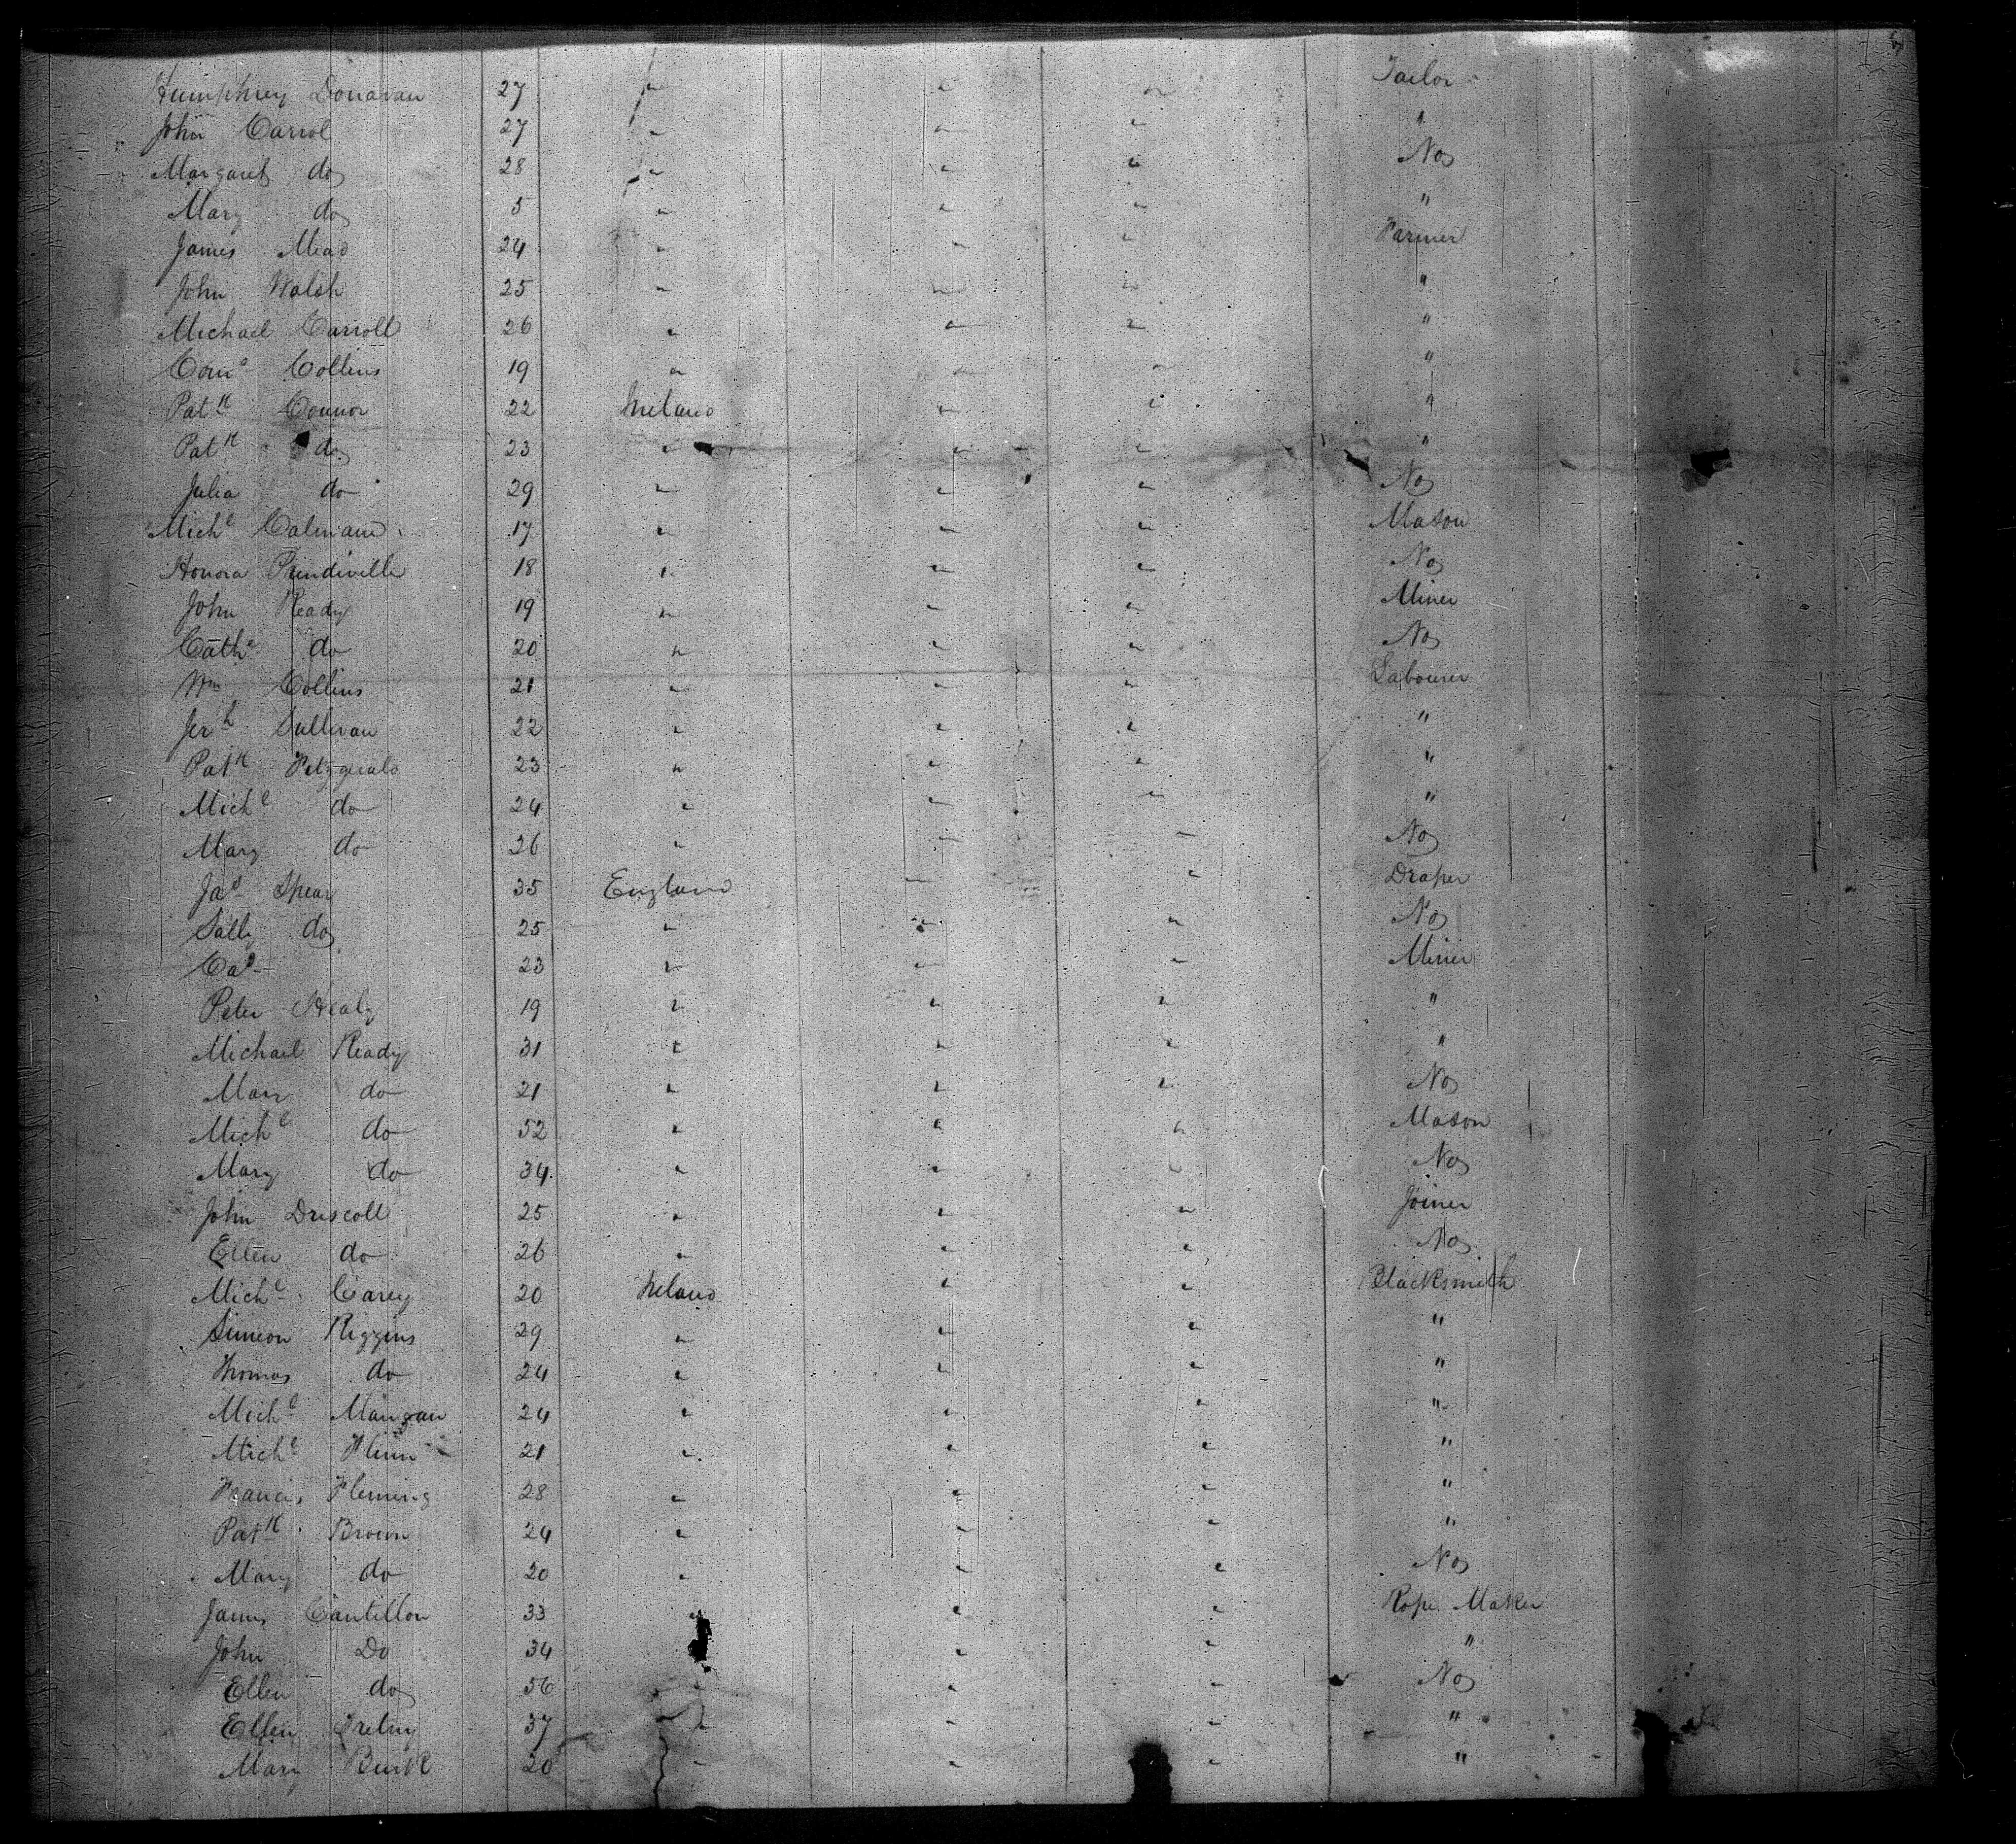 Humphrey Donavan 27 " " " Tailor
John Carrol 27 " " " "
Margaret do 28 " " " No
Mary do 5 " " " "
James Mead 24 " " " Farmer
John Walsh 25 " " " "
Michael Carroll 26 " " " "
Corns Collins 19 " " " "
Patk Connor 22 Ireland " " "
Patk do 23 " " " "
Julia do 29 " " " No
Michl 17 " " " Mason
Honora Prindiville 18 " " " No
John Ready 19 " " " Miner
Cathe do 20 " " " No
Wm Collins 21 " " " Labourer
Jerh Sullivan 22 " " " "
Patk Fitzgerald 23 " " " "
Michl do 24 " " " "
Mary do 26 " " " No
Jas Spear 35 England " " Draper
Sally do 25 " " " No
23 " " " Miner
Peter Healy 19 " " " "
Michael Ready 31 " " " "
Mary do 21 " " " No
Michl do 52 " " " Mason
Mary do 34 " " " No
John Driscoll 25 " " " Joiner
Ellen do 26 " " " No
Michl Carey 20 Ireland " " Blacksmith
Simeon Riggins 29 " " " "
Thomas do 24 " " " "
Michl Mangan 24 " " " "
Michl Flinn 21 " " " "
Francis Fleming 28 " " " "
Patk Brown 24 " " " "
Mary do 20 " " " No
James Cantillon 33 " " " Rope Maker
John Do 34 " " "
Ellen do 56 " " " No
Ellen 37 " " " "
Mary Burk 20 " " " "